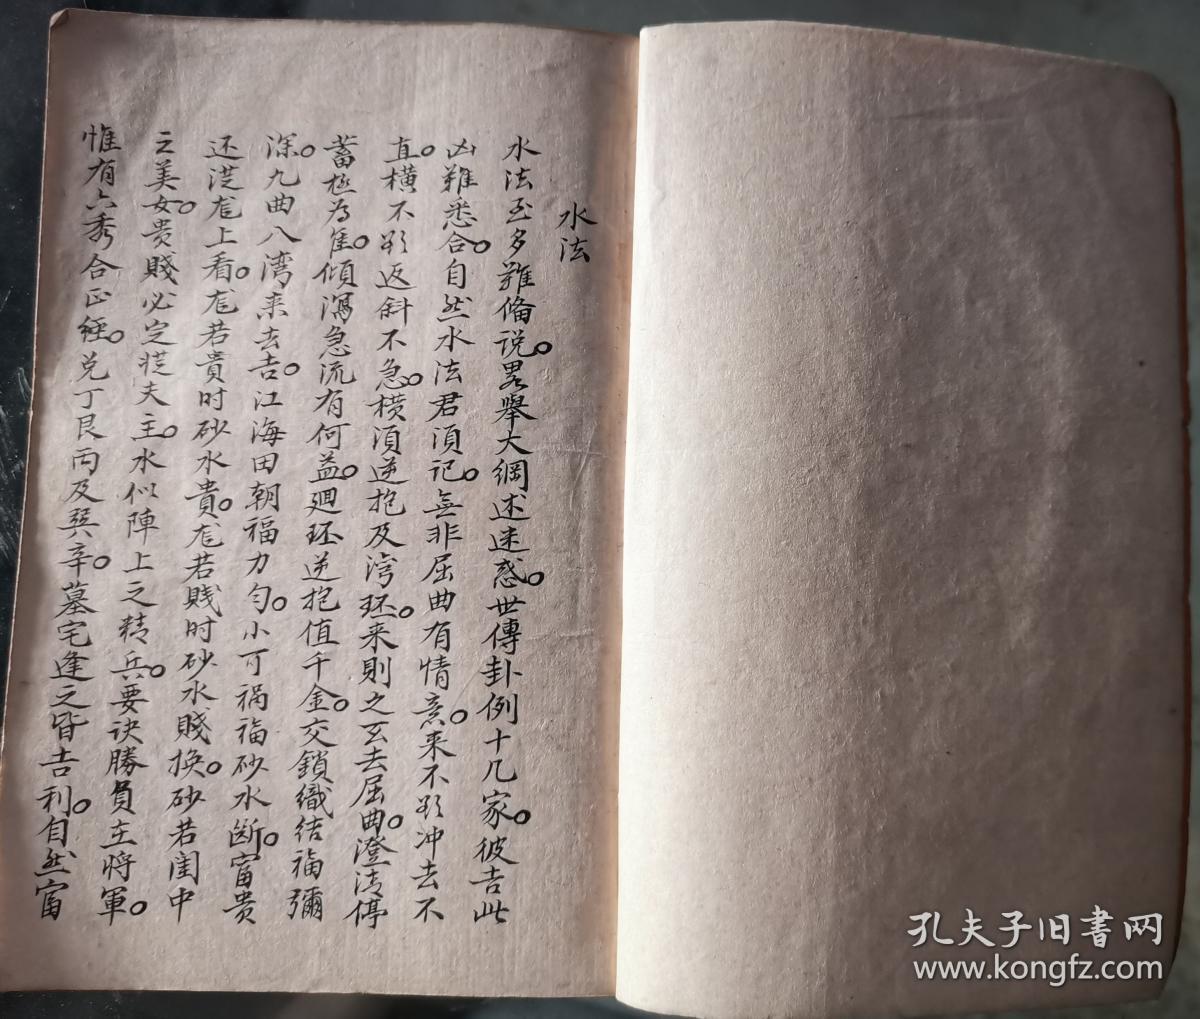 水法
水法至多难俻说。畧舉大綱述迷惑。世傳卦例十几家。彼吉此
凶难悉合。自然水法君須记。無非屈曲有情意。来不欲冲去不
直。橫不欲返斜不急。横須逆抱及湾环。来則之玄去屈曲。澄清停
蓄極为隹。傾瀉急流有何益。廻环逆抱值千金。交鎖織结福彌
深。九曲八湾来去吉。江海田朝福力匀。小可祸福砂水断。富贵
还從龙上看。龙若貴时砂水貴。龙若賎时砂水賤换。砂若闺中
之美女。贵賤必定從夫主。水似陣上之精兵。要诀勝負主將軍。
惟有六秀合正經。兑丁艮丙及巽辛。墓宅逢之皆吉利。自然富
孔夫子旧书网
www.kongfz.com